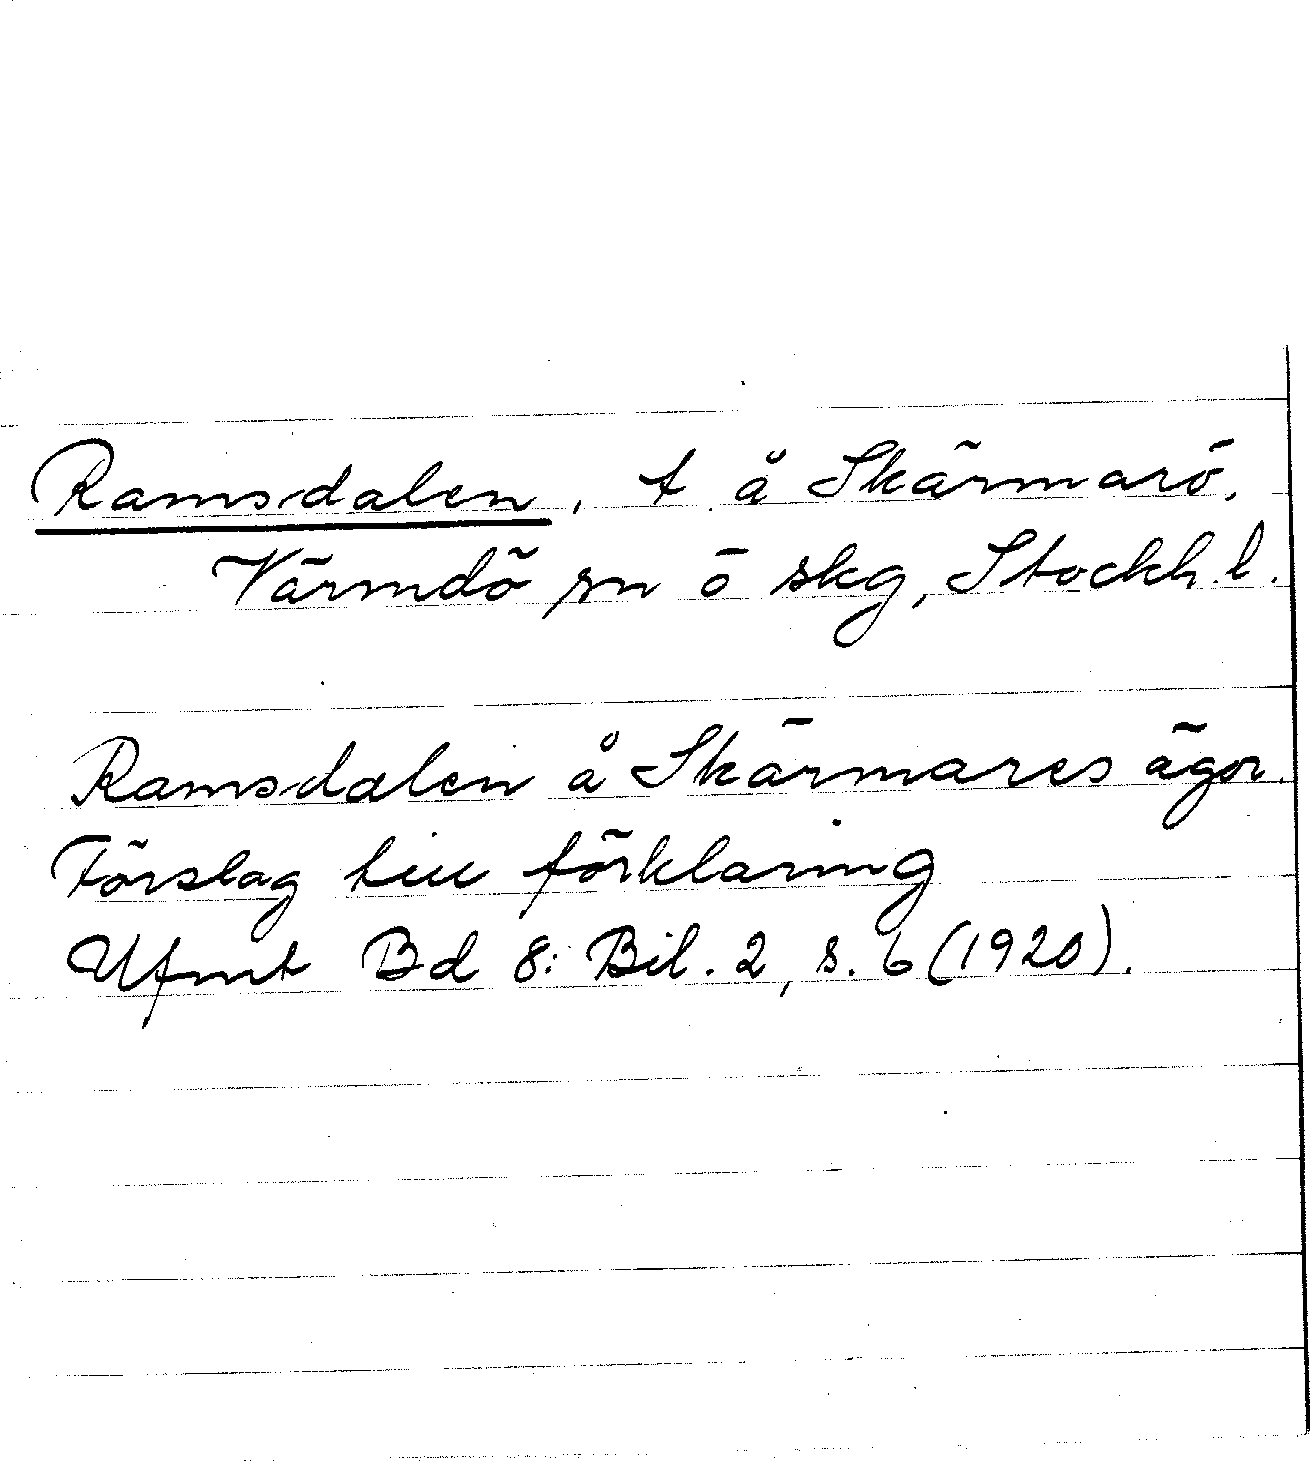 Ramsdalen, t å Skärmarö,
Värmdö sn ö skg, Stockh. l.
Ramsdalen å Skärmares ägor.
Förslag till förklaring
Ufmt Bd 8: Bil. 2, s. 6 (1920).